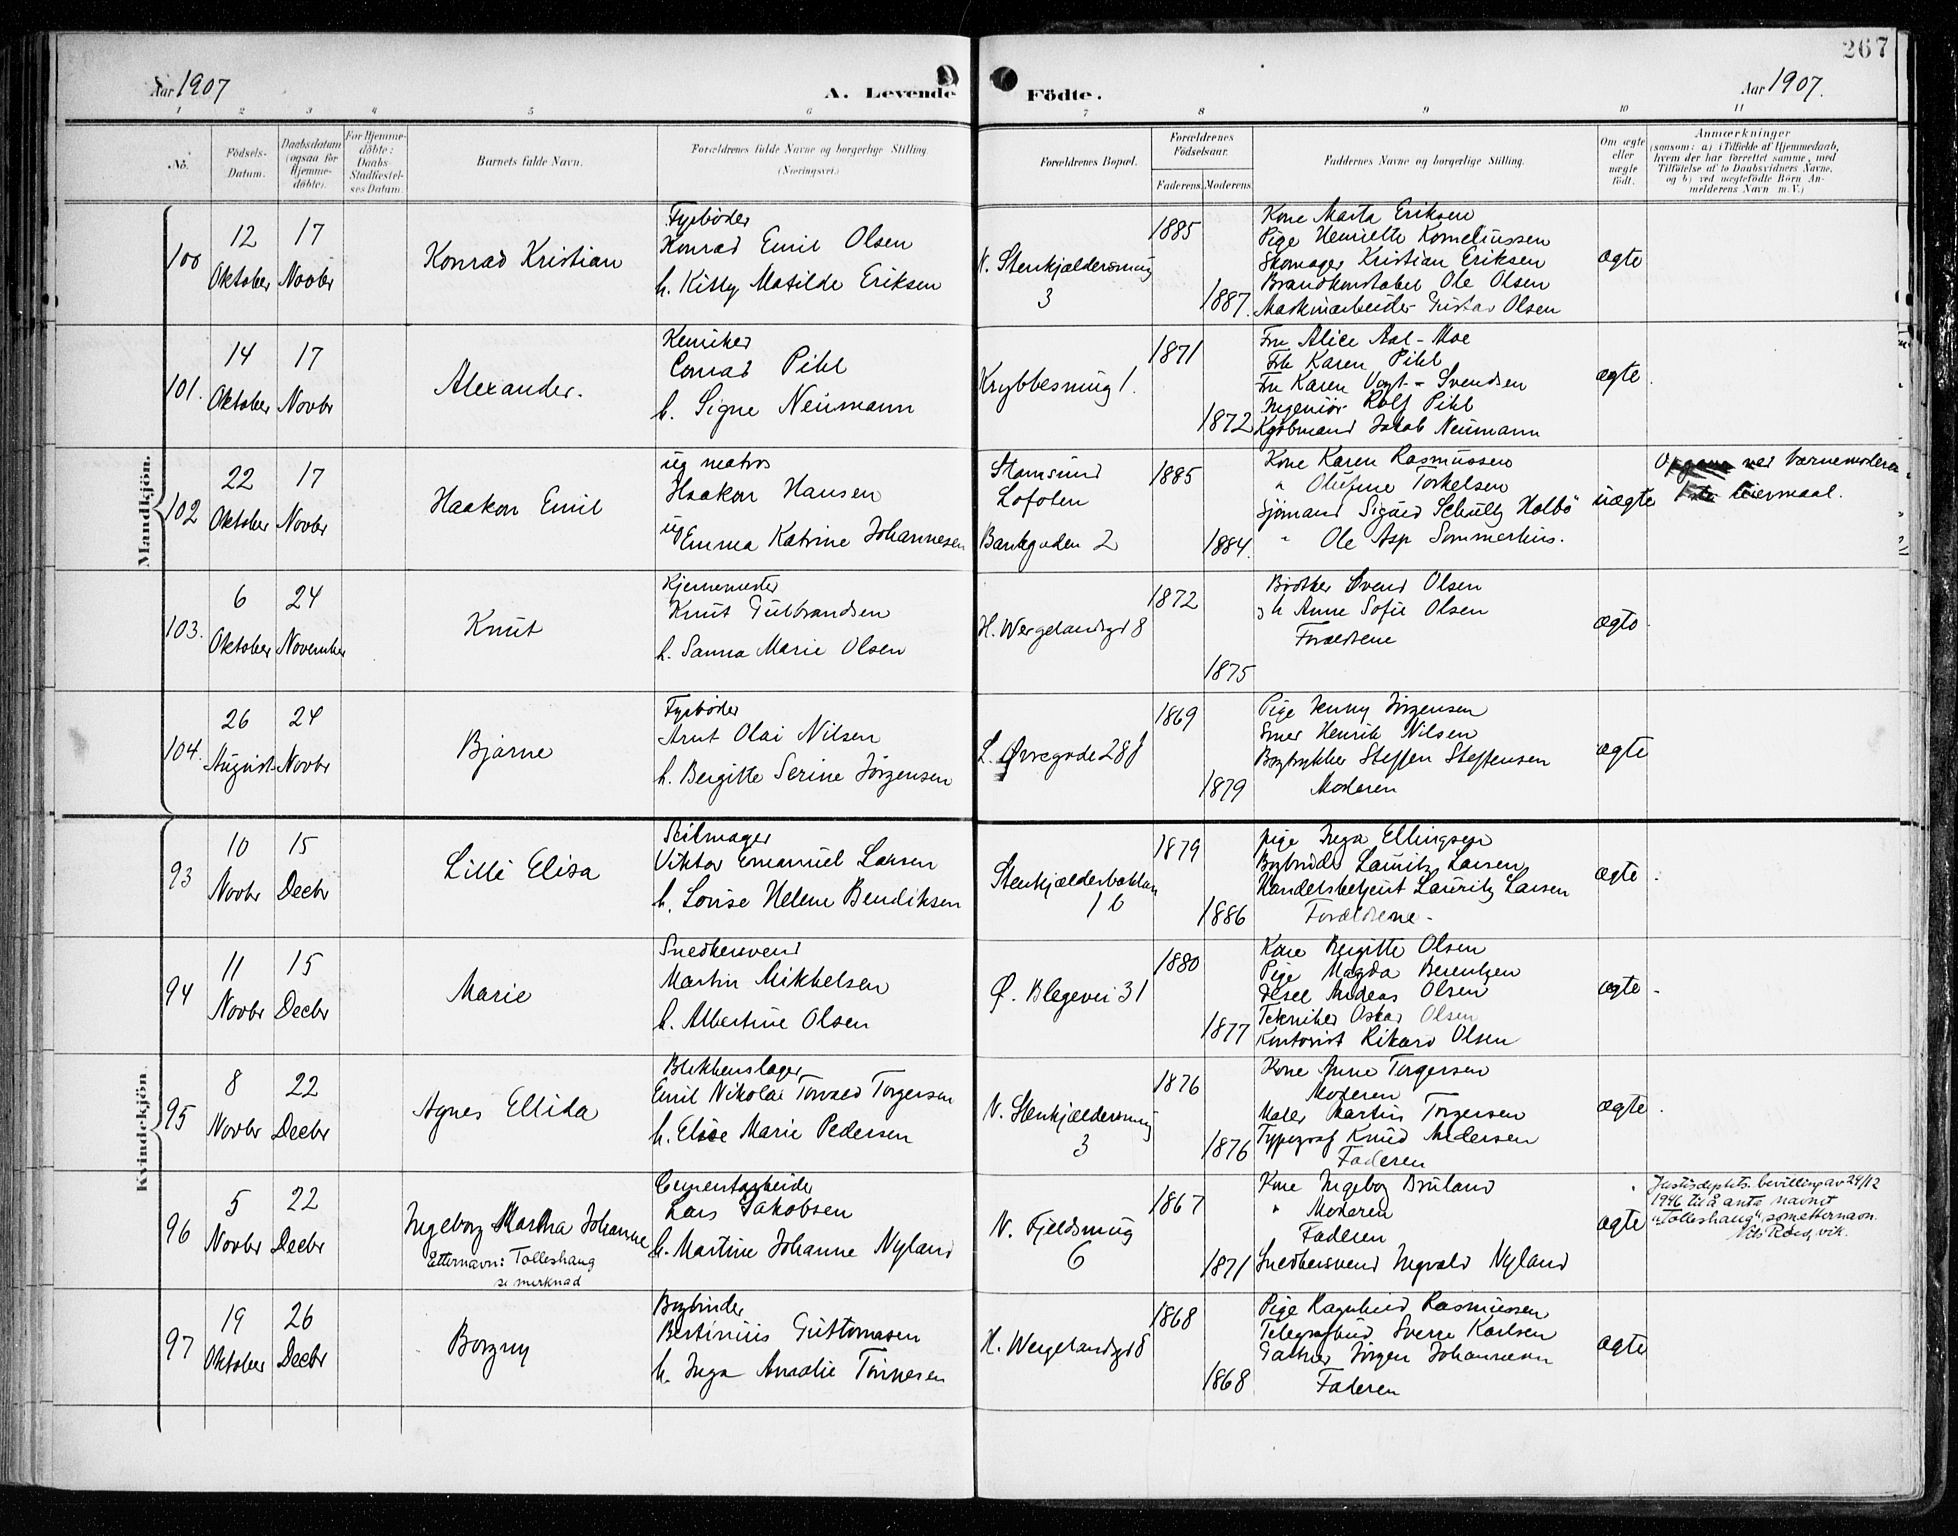 267
Aar 1907
A. Levende
Födte.
Aar 1907.
1 2 3 4 5 6 7 8 9 10 11
No.
Födsels-
Datum.
Daabsdatum
(ogsaa for
Hjemme-
döbte).
For Hjemme-
döbte:
Daabs
Stadfæstel-
ses Datum.
Barnets fulde Navn.
Forældrenes fulde Navne og borgerlige Stilling.
(Næringsvei.)
Forældrenes Bopæl.
Forældrenes
Födselsaar.
Faderens. Moderens.
Faddernes Navne og borgerlige Stilling.
Om ægte
eller
uægte
födt.
Anmærkninger
(saasom: a) i Tilfælde af Hjemmedaab,
hvem der har forrettet samme, med
Tilföielse af to Daabsvidners Navne,
og b) ved uægtefödte Börn An-
melderens Navn m. V.)
Mandkjön.
100
12
Oktober
17
Novbr
Konrad Kristian
Fyrbøder
Konrad Emil Olsen
h. Kitty Matilde Eriksen
N. Stenkjældersmug
3
1885
1887.
Kone Marta Eriksen
Pige Henriette Korneliussen
Skomager Kristian Eriksen
Brandkonstabel Ole Olsen
Maskinarbeider Gustav Olsen
ægte
101.
14
Oktober
17
Novbr
Alexander.
Kemiker
Conrad Pihl
h. Signe Neumann
Krybbesmug 1.
1871
1872
Fru Alice Aal-Moe
Frk Karen Pihl
Fru Karen Vogt-Svendsen
Ingeniør Rolf Pihl
Kjøbmand Jakob Neumann
ægte
102
22
Oktober
17
Novbr
Haakon Emil
ug matros
Haakon Hansen
ug Emma Katrine Johannesen
Stamsund
Lofoten
Bankgaden 2
1885
1884.
Kone Karen Rasmussen
" Olufine Torkelsen
Sjømand Sigurd Schultz Holbø
" Ole Asp Sommerhus.
uægte
ved barnemoderen
leiermaal.
103.
6
Oktober
24
November
Knut
Kjernemester
Knut Gulbrandsen
h. Sanna Marie Olsen
H. Wergelandsgd 8
1872
1875
Bødker Svend Olsen
og h Anne Sofie Olsen
Forældrene
ægte
104.
26
August
24
Novbr
Bjarne
Fyrbøder
Arnt Olai Nilsen
h. Bergitte Serine Jørgensen
L. Øvregade 28
1869
1879
Pige Jenny Jørgensen
Smer Henrik Nilsen
Bogtrykker Steffen Steffensen
Moderen
ægte
Kvindekjön
93
10
Novbr
15
Decbr
Lilli Elisa
Seilmager
Viktor Emanuel Larsen
h. Lovise Helene Bendiksen
Stenkjælderbakken
16
1879
1886
Pige Inga Ellingsen
Lauritz Larsen
Handelsbetjent Lauritz Larsen
Forældrene
ægte
94
11
Novbr
15
Decbr
Marie
Snedkersvend
Martin Mikkelsen
h. Albertine Olsen
Ø. Blegevei 31
1880
1877
Kone Bergitte Olsen
Pige Magda Berentzen
Andreas Olsen
Tekniker Oskar Olsen
Kontorist Rikard Olsen
ægte
95
8
Novbr
22
Decbr
Agnes Ellida
Blikkenslager
Emil Nikolai Torvald Torgersen
h. Elise Marie Pedersen
N. Stenkjældersmug
3
1876
1876
Kone Anne Torgersen
Moderen
Maler Martin Torgersen
Typograf Knud Andersen
Faderen
ægte
96
5
Novbr
22
Decbr
Ingeborg Martha Johanne
Etternavn: Tolleshaug
se merknad
Cementarbeider
Lars Jakobsen
h. Martine Johanne Nyland
N. Fjeldsmug
6
1867
1871
Kone Ingeborg Bruland
" Moderen
Faderen
Snedkersvend Ingvald Nyland
ægte
Justisdeptets. bevilling av 24/12
1946 til å anta navnet
"Tolleshaug" som etternavn.
97
19
Oktober
26
Decbr
Borgny
Bogbinder
Bertinius Guttormsen
h. Inga Amalie Tønnesen
H. Wergelandsgd 8
1868
1868
Pige Ragnhild Rasmussen
Telegrafbud Sverre Karlsen
Gartner Jørgen Johannesen
Faderen
ægte